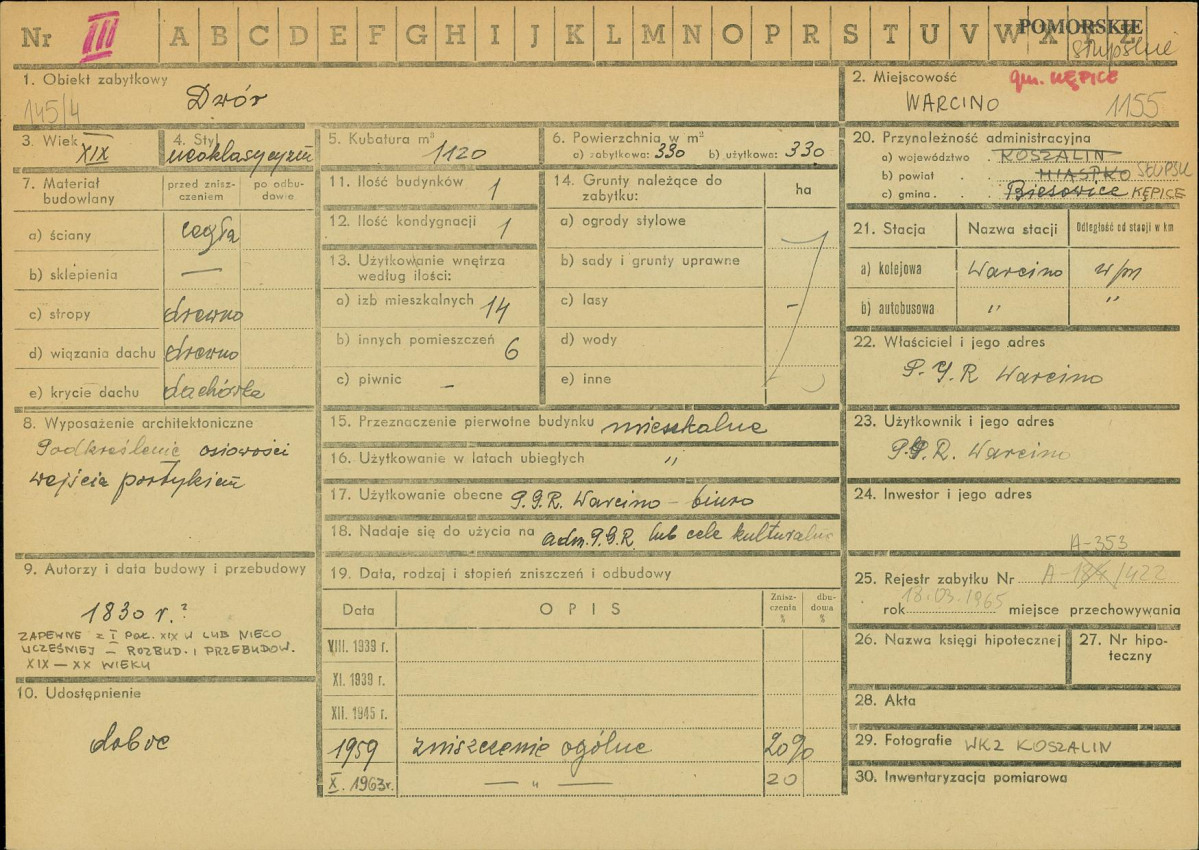 Nr III A B C D E F G H I J K L M N O P R S T U V W X Y Z
POMORSKIE
słupskie
1. Obiekt zabytkowy
145/4
Dwór
2. Miejscowość gm. KĘPICE
WARCINO 1155
3. Wiek XIX
4. Styl neoklasycyzm
5. Kubatura m³ 1120
6. Powierzchnia w m²
a) zabytkowa: 330 b) użytkowa: 330
7. Materiał budowlany
przed zniszczeniem
po odbudowie
a) ściany cegła
b) sklepienia —
c) stropy drewno
d) wiązania dachu drewno
e) krycie dachu dachówka
8. Wyposażenie architektoniczne
Podkreślenie osiowości
wejścia portykiem
9. Autorzy i data budowy i przebudowy
1830 r.?
ZAPEWNE z I POŁ. XIX W LUB NIECO
WCZEŚNIEJ – ROZBUD. I PRZEBUDOW.
XIX – XX WIEKU
10. Udostępnienie
dobre
11. Ilość budynków 1
12. Ilość kondygnacji 1
13. Użytkowanie wnętrza
według ilości:
a) izb mieszkalnych 14
b) innych pomieszczeń 6
c) piwnic –
14. Grunty należące do
zabytku:
ha
a) ogrody stylowe
b) sady i grunty uprawne
c) lasy –
d) wody
e) inne
15. Przeznaczenie pierwotne budynku mieszkalne
16. Użytkowanie w latach ubiegłych "
17. Użytkowanie obecne P.G.R. Warcino – biuro
18. Nadaje się do użycia na adm. P.G.R. lub cele kulturalne
19. Data, rodzaj i stopień zniszczeń i odbudowy
Data
OPIS
Zniszczenia %
dbudowa %
VIII. 1939 r.
XI. 1939 r.
XII. 1945 r.
1959 zniszczenie ogólne 20%
X. 1963 r. — " — 20
20. Przynależność administracyjna
a) województwo . KOSZALIN
b) powiat . . MIASTKO SŁUPSK
c) gmina . . . Biesowice KĘPICE
21. Stacja
Nazwa stacji
Odległość od stacji w km
a) kolejowa Warcino w/m
b) autobusowa " "
22. Właściciel i jego adres
P.G.R Warcino
23. Użytkownik i jego adres
P.G.R. Warcino
24. Inwestor i jego adres
A-353
25. Rejestr zabytku Nr /422
rok 18.03.1965 miejsce przechowywania
26. Nazwa księgi hipotecznej
27. Nr hipoteczny
28. Akta
29. Fotografie WKZ KOSZALIN
30. Inwentaryzacja pomiarowa